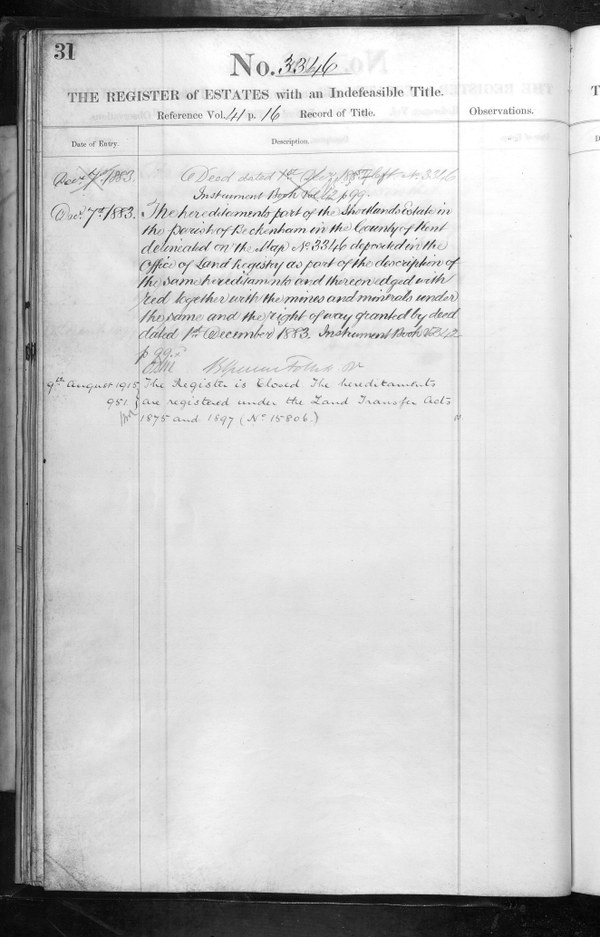 31
No. 3346
THE REGISTER of ESTATES with an Indefeasible Title.
Reference Vol. 41 p. 16 Record of Title.
Observations.
Date of Entry.
Description.
Decr 7th 1883.
Deed dated 1st 3346
Instrument Book Vol. 42 p 99.
Decr 7th 1883. The hereditaments part of the Shortlands Estate in
the Parish of Beckenham in the County of Kent
delineated on the Map No 3346 deposited in the
Office of Land Registry as part of the description of
the same hereditaments and thereon edged with
red together with the mines and minerals under
the same and the right of way granted by deed
dated 1st December 1883. Instrument Book Vol. 42
p 99.
9th August 1915 The Register is Closed The hereditaments
951. are registered under the Land Transfer Acts
1875 and 1897 (No 15806.)